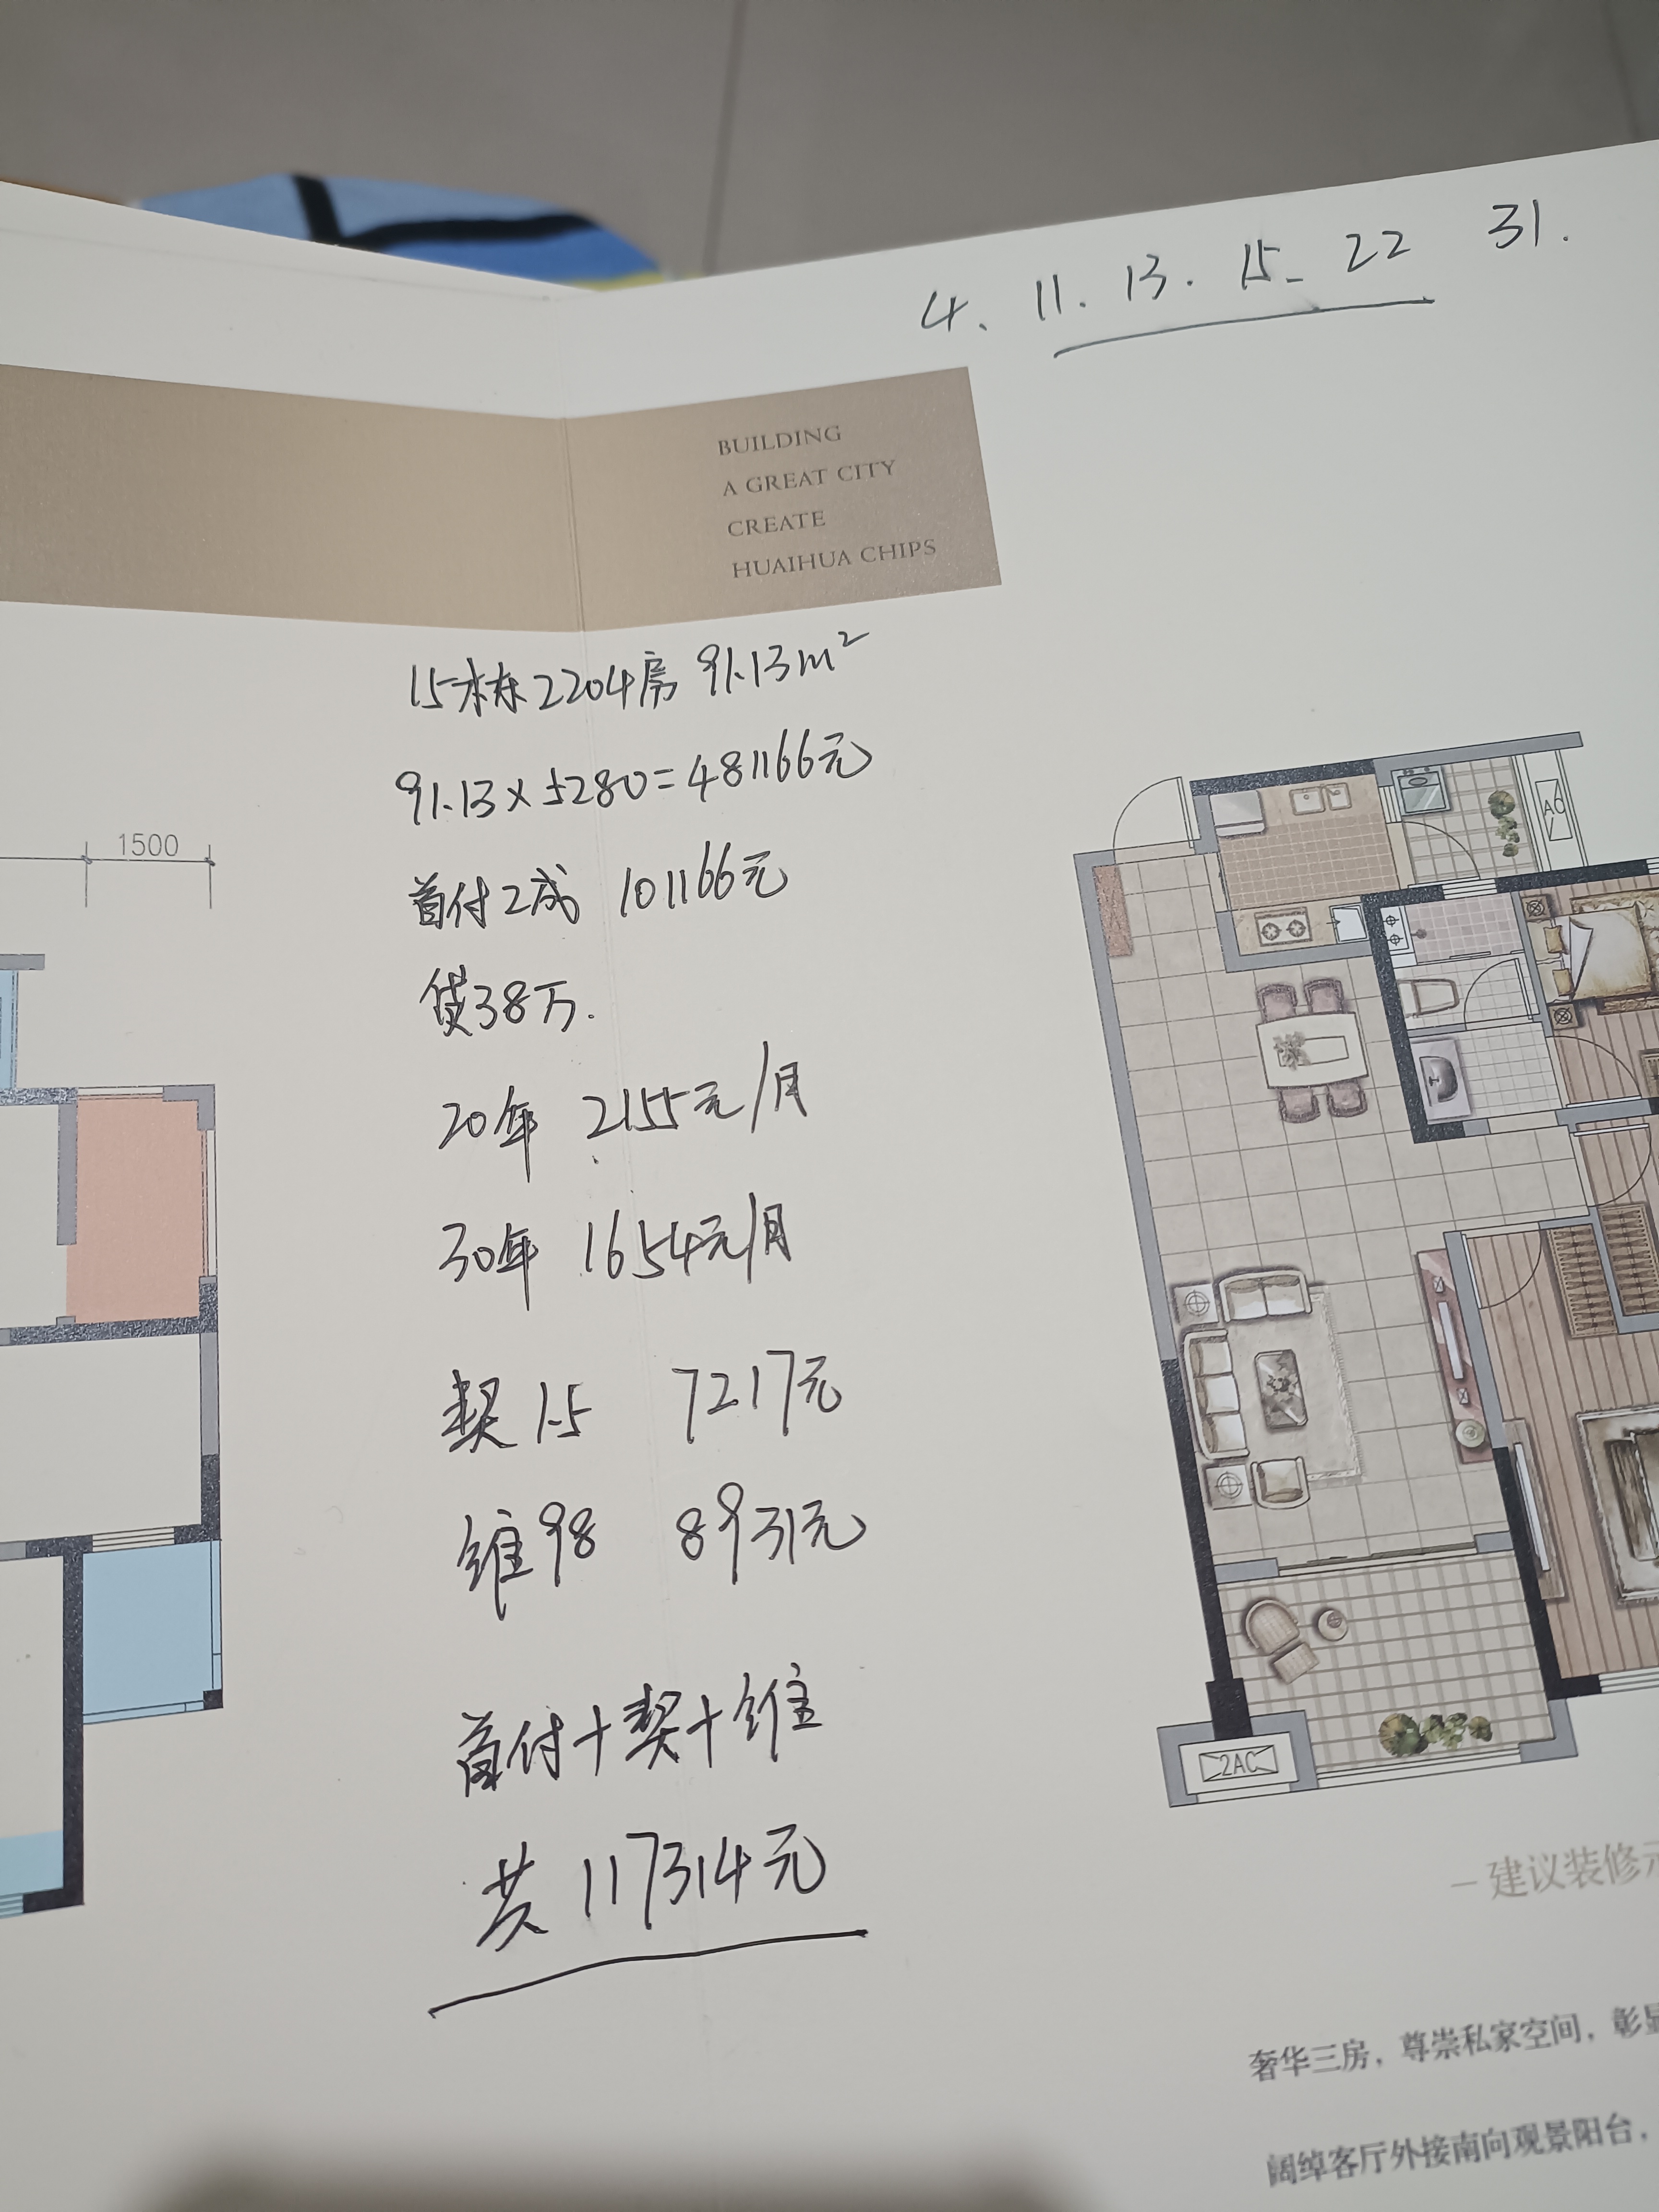 4. 11. 13. 15. 22 31.
BUILDING
A GREAT CITY
CREATE
HUAIHUA CHIPS
15栋2204房 91.13m²
91.13×5280=481166元
首付2成 101166元
贷38万.
20年 2155元/月
30年 1654元/月
契1.5 7217元
维98 8931元
首付+契+维
共 117314元
1500
A6
2AC
—建议装修示
奢华三房，尊崇私家空间，彰显
阔绰客厅外接南向观景阳台，